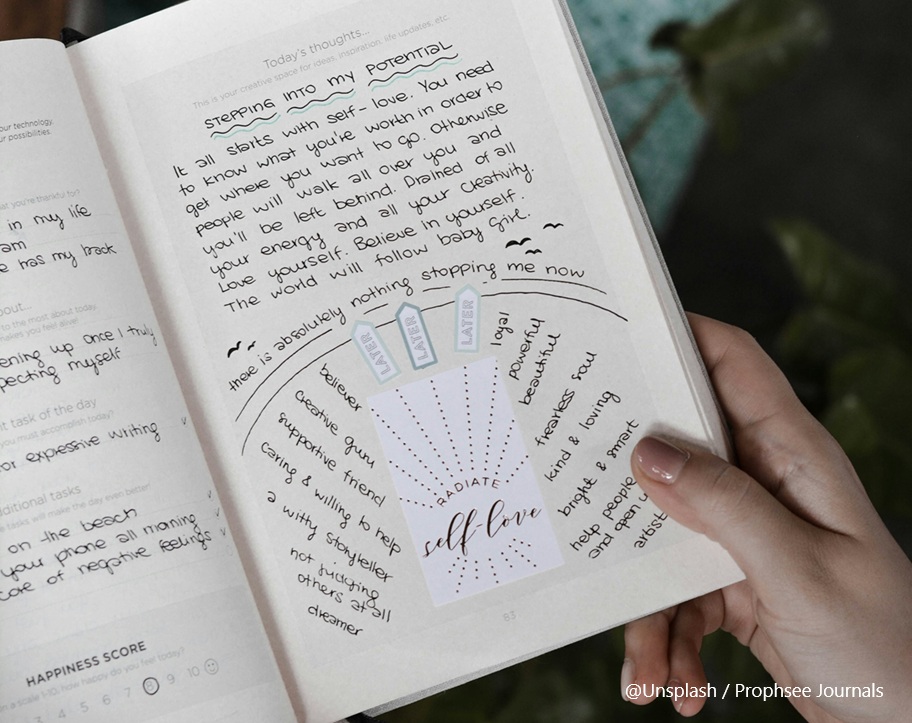 our technology,
ur possibilities.
what you're thankful for?
in my life
am
e has my back
bout...
to the most about today,
makes you feel alive!
ening up once I truly
pecting myself
nt task of the day
you must accomplish today?
or expressive writing
dditional tasks
tasks will make the day even better!
on the beach
your phone all morning
care of negative feelings
HAPPINESS SCORE
n a scale 1-10, how happy do you feel today?
3 4 5 6 7 8 9 10
Today's thoughts...
This is your creative space for ideas, inspiration, life updates, etc.
STEPPING INTO MY POTENTIAL
It all starts with self-love. You need
to know what you're worth in order to
get where you want to go. Otherwise
people will walk all over you and
you'll be left behind. Drained of all
your energy and all your creativity.
Love yourself. Believe in yourself.
The world will follow baby girl.
there is absolutely nothing stopping me now
LATER
LATER
LATER
believer
creative guru
supportive friend
caring & willing to help
a witty storyteller
not judging
others at all
dreamer
RADIATE
self-love
loyal
powerful
beautiful
fearless soul
kind & loving
bright & smart
help people
and open
artist
83
@Unsplash / Prophsee Journals